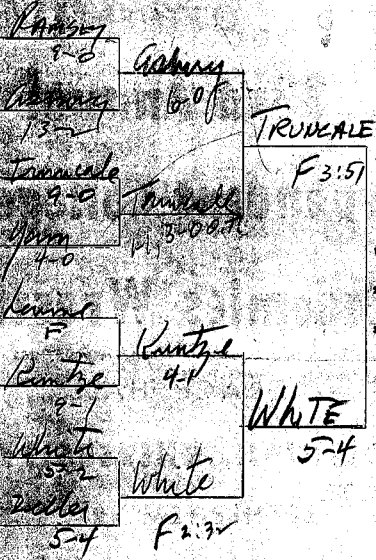 Ramsey
9-0
Asbury
13-2
Truncale
9-0
4-0
Levine
F
Kuntze
9-1
White
15-2
Zedler
5-4
Asbury
6-0
Truncale
Kuntze
4-1
White
F 2:32
TRUNCALE
F 3:51
WHITE
5-4